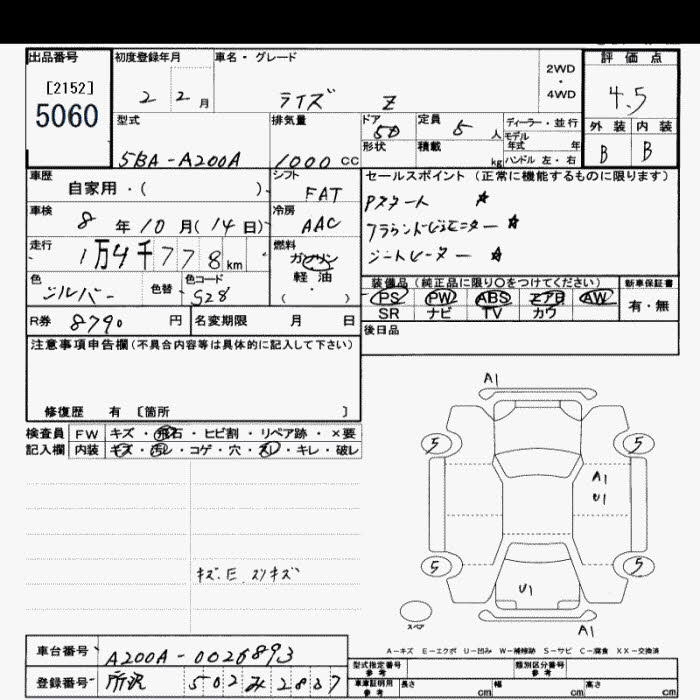 出品番号 初度登録年月 車名・グレード 2WD・4WD 評価点
[2152]
5060
2 2月 ライズ Z 4.5
型式 排気量 ドア 5D 定員 5人 ディーラー・並行 外装 内装
形状 積載 kg モデル年式 年 ハンドル 左・右 B B
5BA-A200A 1000cc
車歴 自家用・( ) シフト FAT セールスポイント (正常に機能するものに限ります)
車検 8年10月(14日) 冷房 AAC Pスタート ☆
走行 1万4千778km 燃料 ガソリン・軽油 ( )
シートヒーター ☆
色 シルバー 色替 色コード S28
装備品(純正品に限り○をつけてください) 新車保証書
PS PW ABS エアB AW 有・無
SR ナビ TV カワ
R券 8790円 名変期限 月 日 後日品
注意事項申告欄(不具合内容等は具体的に記入して下さい)
修復歴 有 〔箇所 〕
検査員 FW キズ・飛石・ヒビ割・リペア跡・×要
記入欄 内装 キズ・汚レ・コゲ・穴・スレ・キレ・破レ
A1
5 5
A1
U1
キズ.E スリキズ
5 5
U1
スペア
A1
A-キズ E-エクボ U-凹み W-補修跡 S-サビ C-腐食 XX-交換済
車台番号 A200A-0026893
登録番号 所沢 502 み 2837
型式指定番号 参考 類別区分番号 参考
車庫証明用 参考 長さ cm 幅 cm 高さ cm